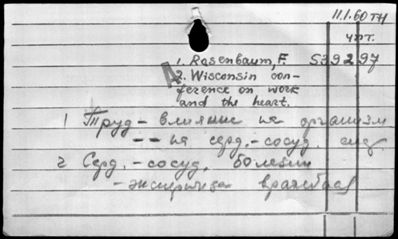 11.1.60 тн
чт.
1. Rosenbaum, F. 539297
2. Wisconsin con-
ference on work
and the heart.
1 Труд - влияние на организм
- - на серд.-сосуд. сист.
2 Серд.-сосуд. болезни
- экспертиза врачебная